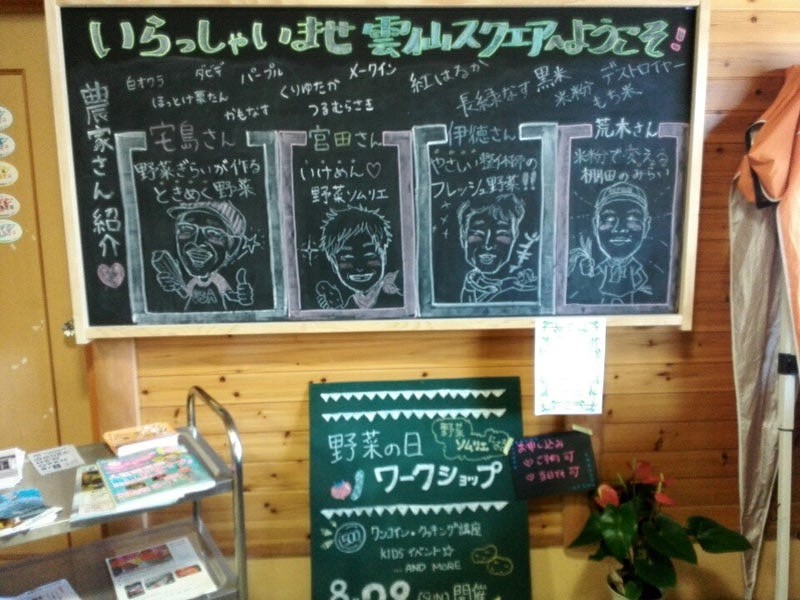 いらっしゃいませ 雲仙スクエアへようこそ!
農家さん紹介♡
白オクラ
ダビデ
パープル
メークイン
紅はるか
黒米
デストロイヤー
ほっとけ栗たん
くりゆたか
長緑なす
米粉
もち米
かもなす
つるむらさき
宅島さん
野菜ぎらいが作る
ときめく野菜
宮田さん
いけめん♡
野菜ソムリエ
伊徳さん
やさしい整体師の
フレッシュ野菜!!
荒木さん
米粉で変える
棚田のみらい
野菜の日
野菜
ソムリエ
ワークショップ
お申し込み
♡ご予約 可
♡当日 可
500
ワンコイン・クッキング講座
KIDS イベント☆
...AND MORE
開催